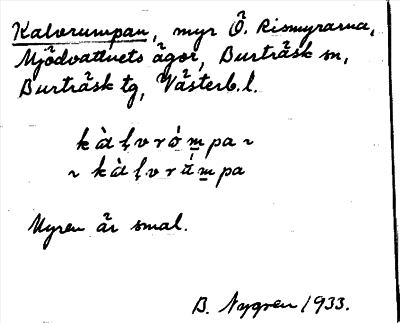 Kalvrumpan, myr Ö. Rismyrarna,
Mjödvattnets ägor, Burträsk sn,
Burträsk tg, Västerb. l.
kàḷvrómpa ~
~ kàḷvrámpa
Myren är smal.
B. Nygren 1933.